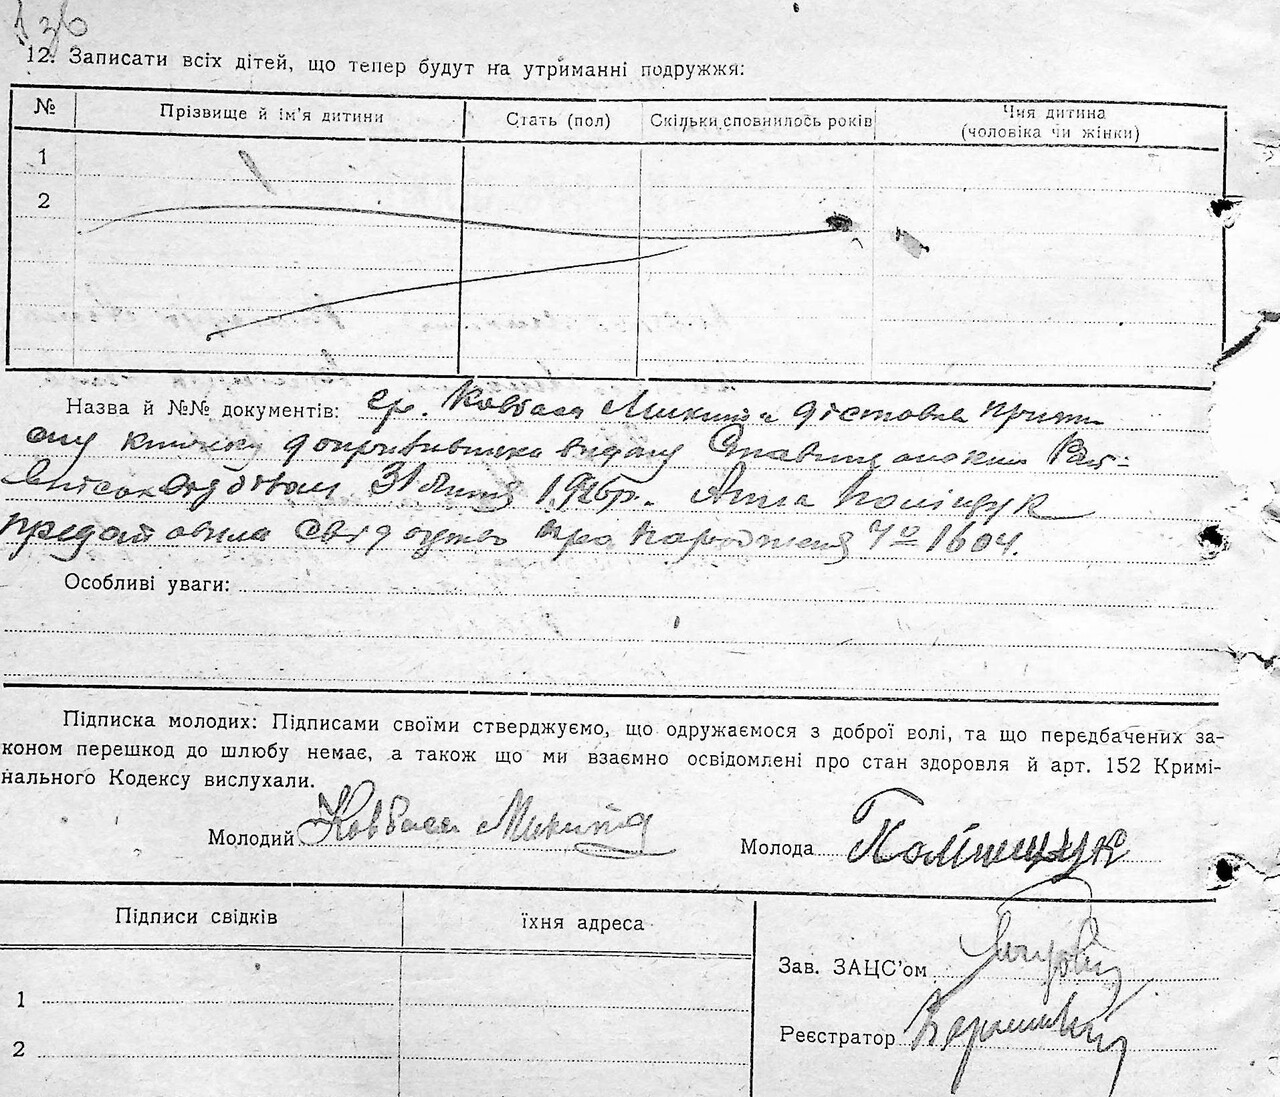 136
12. Записати всіх дітей, що тепер будут на утриманні подружжя:
№ Прізвище й ім'я дитини Стать (пол) Скільки сповнилось років Чия дитина (чоловіка чи жінки)
1
2
Назва й №№ документів: гр. Ковбаса Микита
видану
31 липня 1926р. Анна Поліщук
предоставила свідоцтво про народження № 1604.
Особливі уваги:
Підписка молодих: Підписами своїми стверджуємо, що одружаємося з доброї волі, та що передбачених за-
коном перешкод до шлюбу немає, а також що ми взаємно освідомлені про стан здоровля й арт. 152 Кримі-
нального Кодексу вислухали.
Молодий Ковбаса Микита Молода Поліщук
Підписи свідків їхня адреса
Зав. ЗАЦС'ом
1
Реєстратор
2